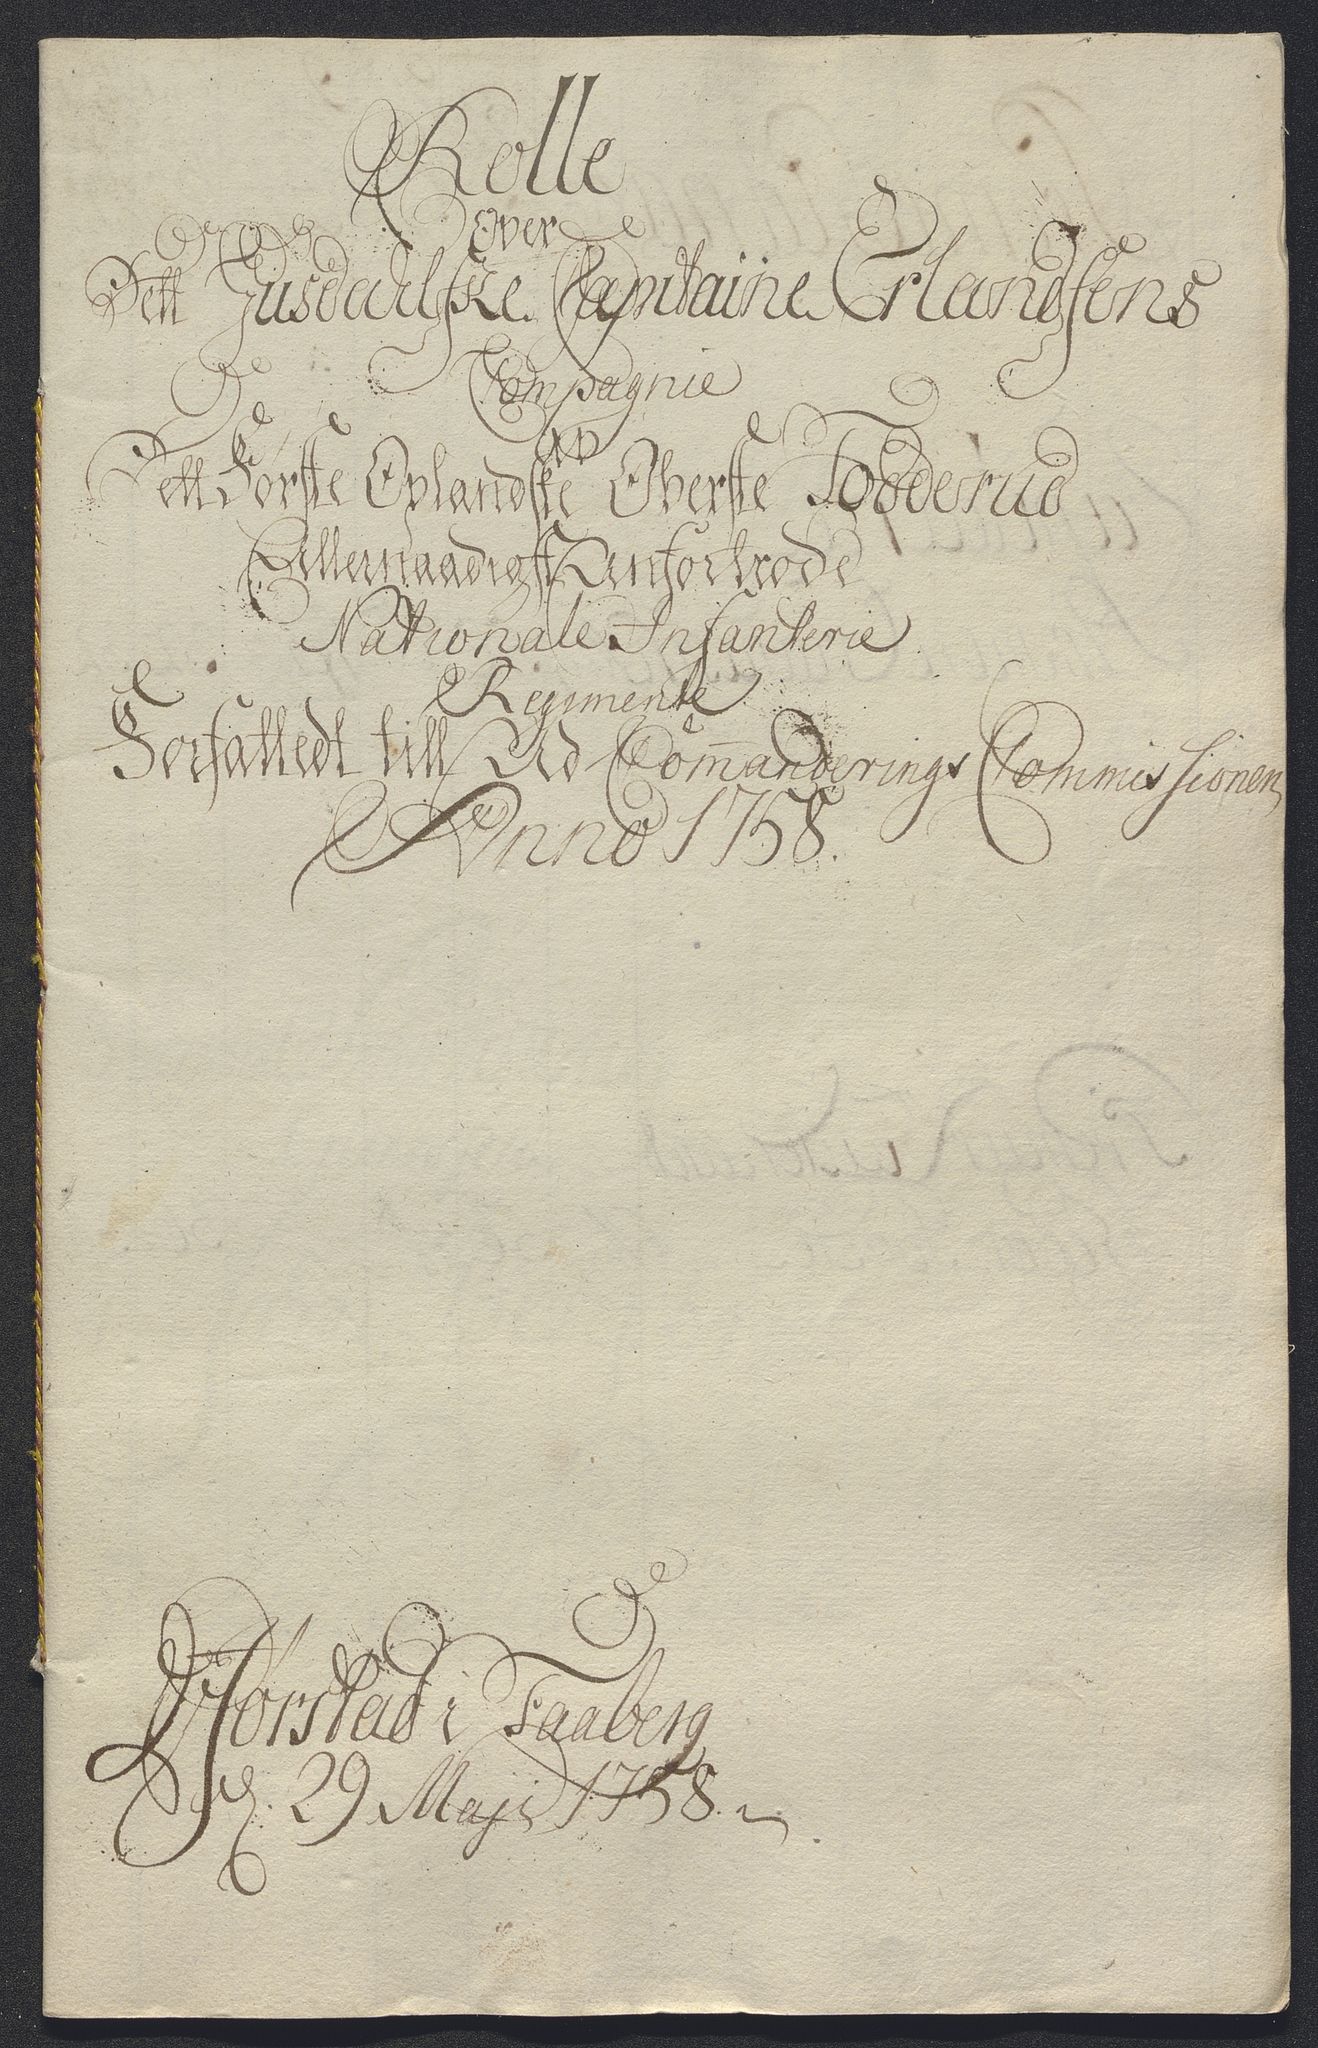 Rolle
Over
Dett Gusdalske Capitaine Erlandsens
Compagnie
Af
Dett Første Oplandske Oberste Fodderud
Allernaadigst Anfortrode
National Infanterie
Regimente
Forfatted till Ud Com̄anderings Commissionen
Anno 1758.
Jørstad i Faaberg
d. 29 Maji 1758.